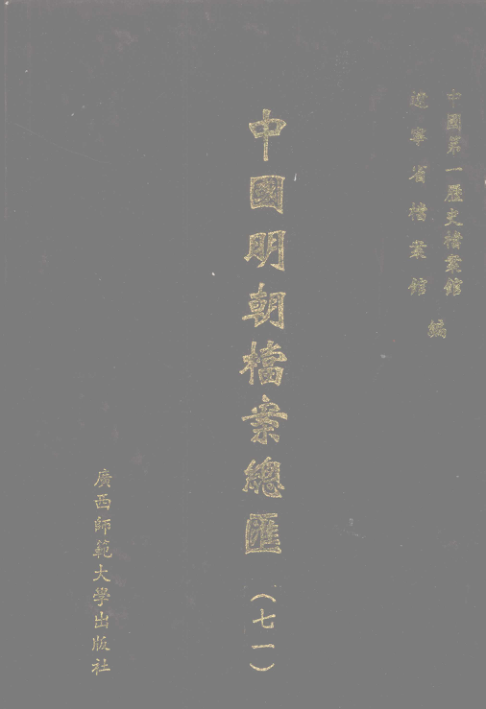 中國第一歷史檔案館
遼寧省檔案館
編
中國明朝檔案總匯(七一)
廣西師範大學出版社